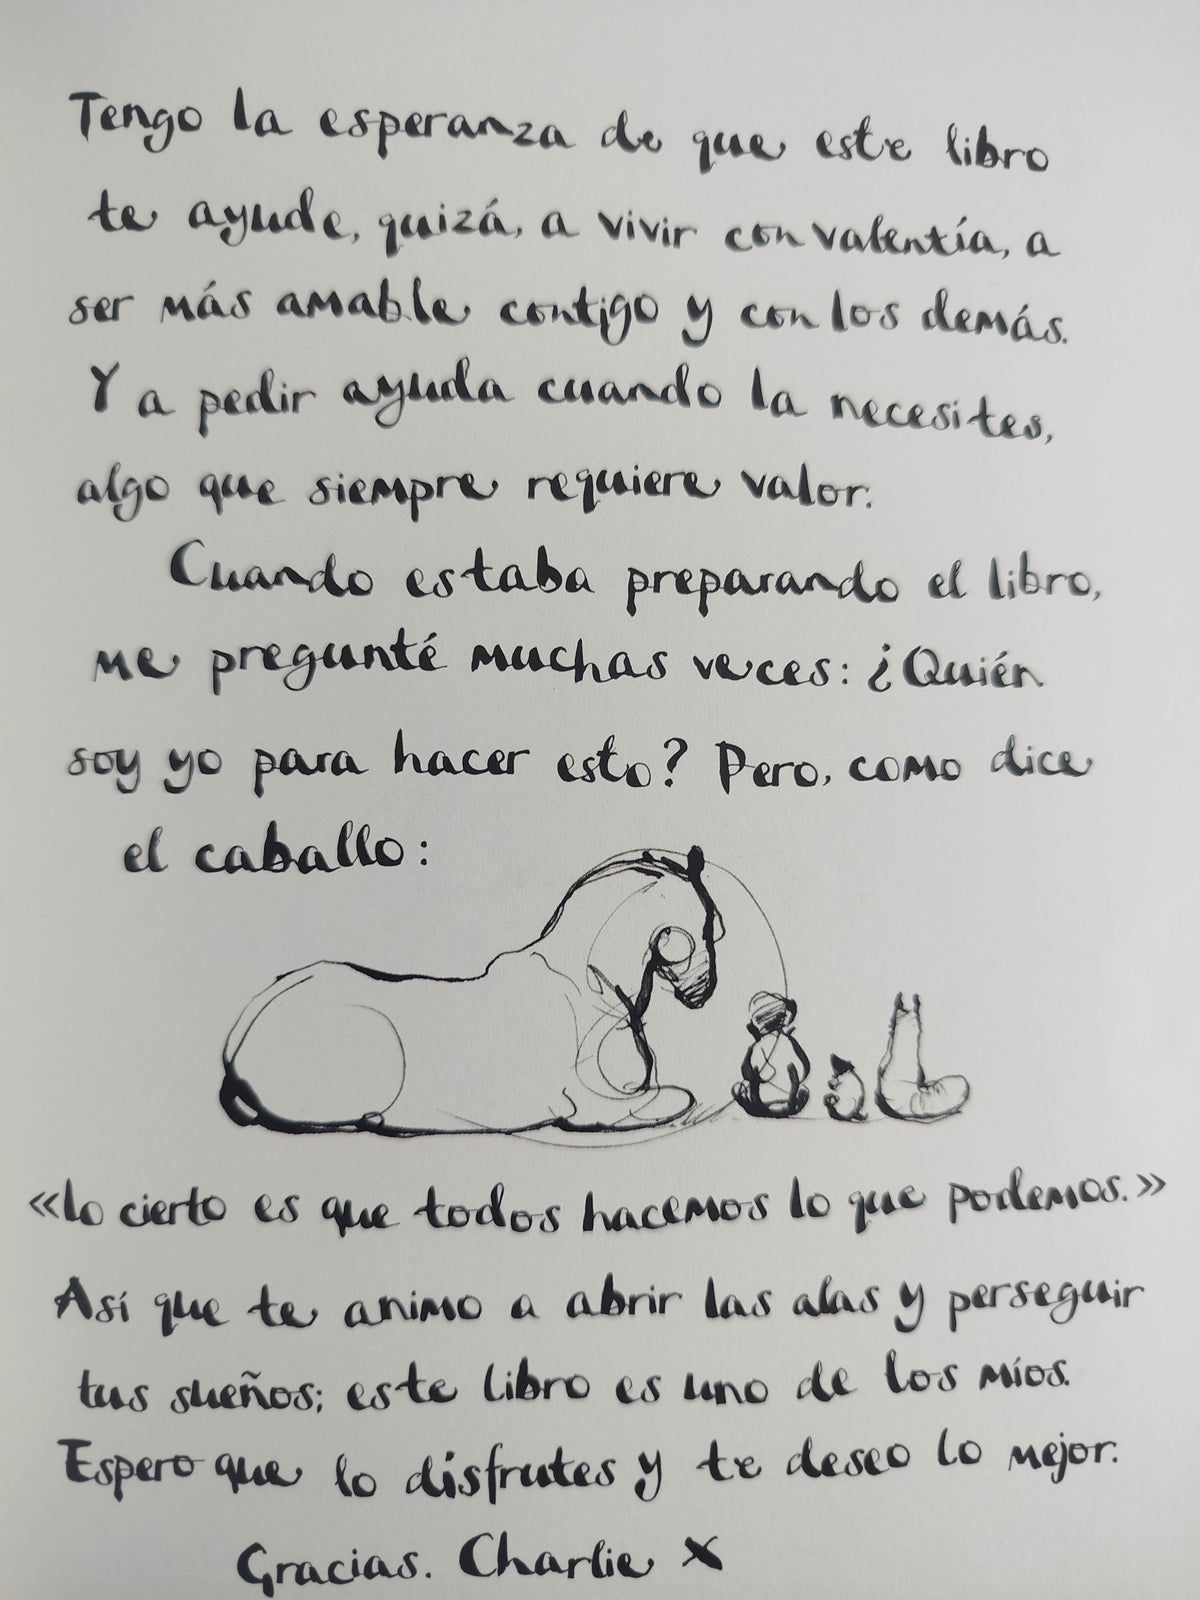 Tengo la esperanza de que este libro
te ayude, quizá, a vivir con valentía, a
ser más amable contigo y con los demás.
Y a pedir ayuda cuando la necesites,
algo que siempre requiere valor.
Cuando estaba preparando el libro,
me pregunté muchas veces: ¿Quién
soy yo para hacer esto? Pero, como dice
el caballo:
«Lo cierto es que todos hacemos lo que podemos.»
Así que te animo a abrir las alas y perseguir
tus sueños; este libro es uno de los míos.
Espero que lo disfrutes y te deseo lo mejor.
Gracias. Charlie X